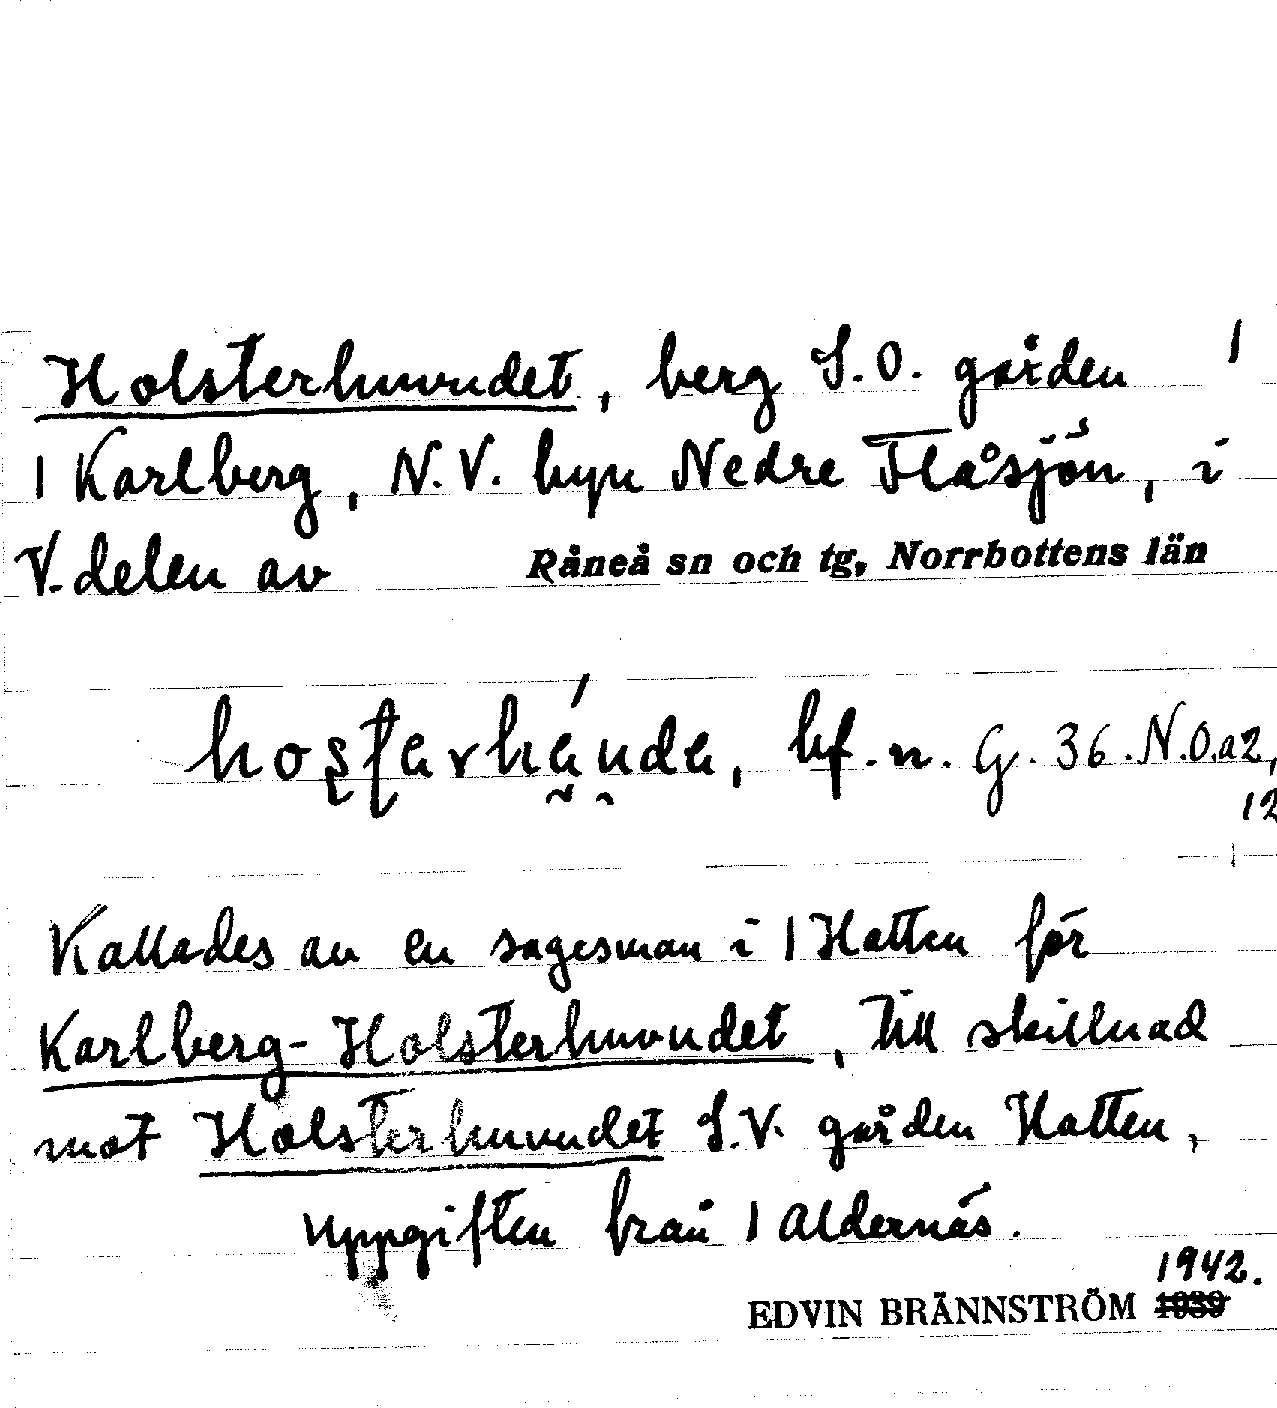 Holsterhuvudet, berg S.O. gården 1
1 Karlberg, N.V. byn Nedre Flåsjön, i
V. delen av Råneå sn och tg, Norrbottens län
bf. n. G. 36. N.O.a2,
12
Kallades av en sagesman i 1 Hatten för
Karlberg-Holsterhuvudet, till skillnad
mot Holsterhuvudet S.V. gården Hatten,
uppgiften från 1 Aldernäs.
1942.
EDVIN BRÄNNSTRÖM 1939